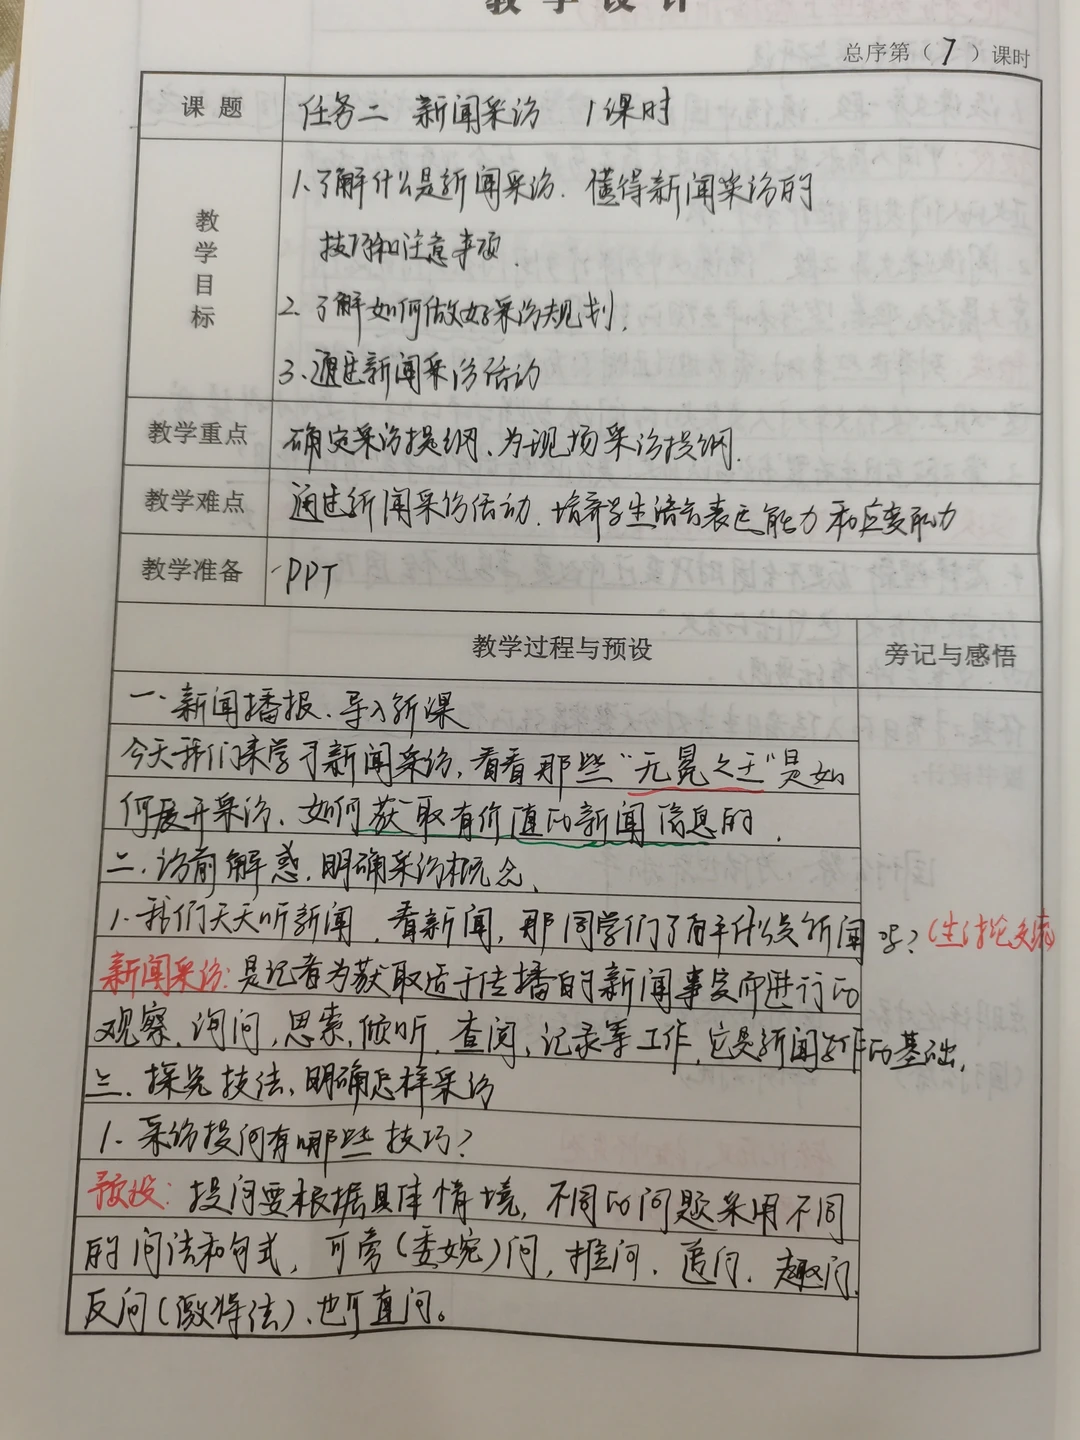 教学设计
总序第（7）课时
课题 任务二 新闻采访 1课时
教学目标
1.了解什么是新闻采访.懂得新闻采访的
技巧和注意事项.
2.了解如何做好采访规划.
3.通过新闻采访活动
教学重点 确定采访提纲、为现场采访提纲.
教学难点 通过新闻采访活动.培养学生语言表达能力和应变能力
教学准备 PPT
教学过程与预设 旁记与感悟
一、新闻播报、导入新课
今天我们来学习新闻采访,看看那些“无冕之王”是如
何展开采访、如何获取有价值的新闻信息的.
二.访前解惑.明确采访概念、
1.我们天天听新闻、看新闻,那同学们了解什么是新闻吗?(生讨论交流)
新闻采访:是记者为获取适于传播的新闻事实而进行的
观察、询问,思索,倾听、查阅、记录等工作,它是新闻写作的基础.
三.探究技法、明确怎样采访
1、采访提问有哪些技巧?
预设:提问要根据具体情境,不同的问题采用不同
的问法和句式,可旁(委婉)问,推问、追问、趣问、
反问(激将法)、也可直问。